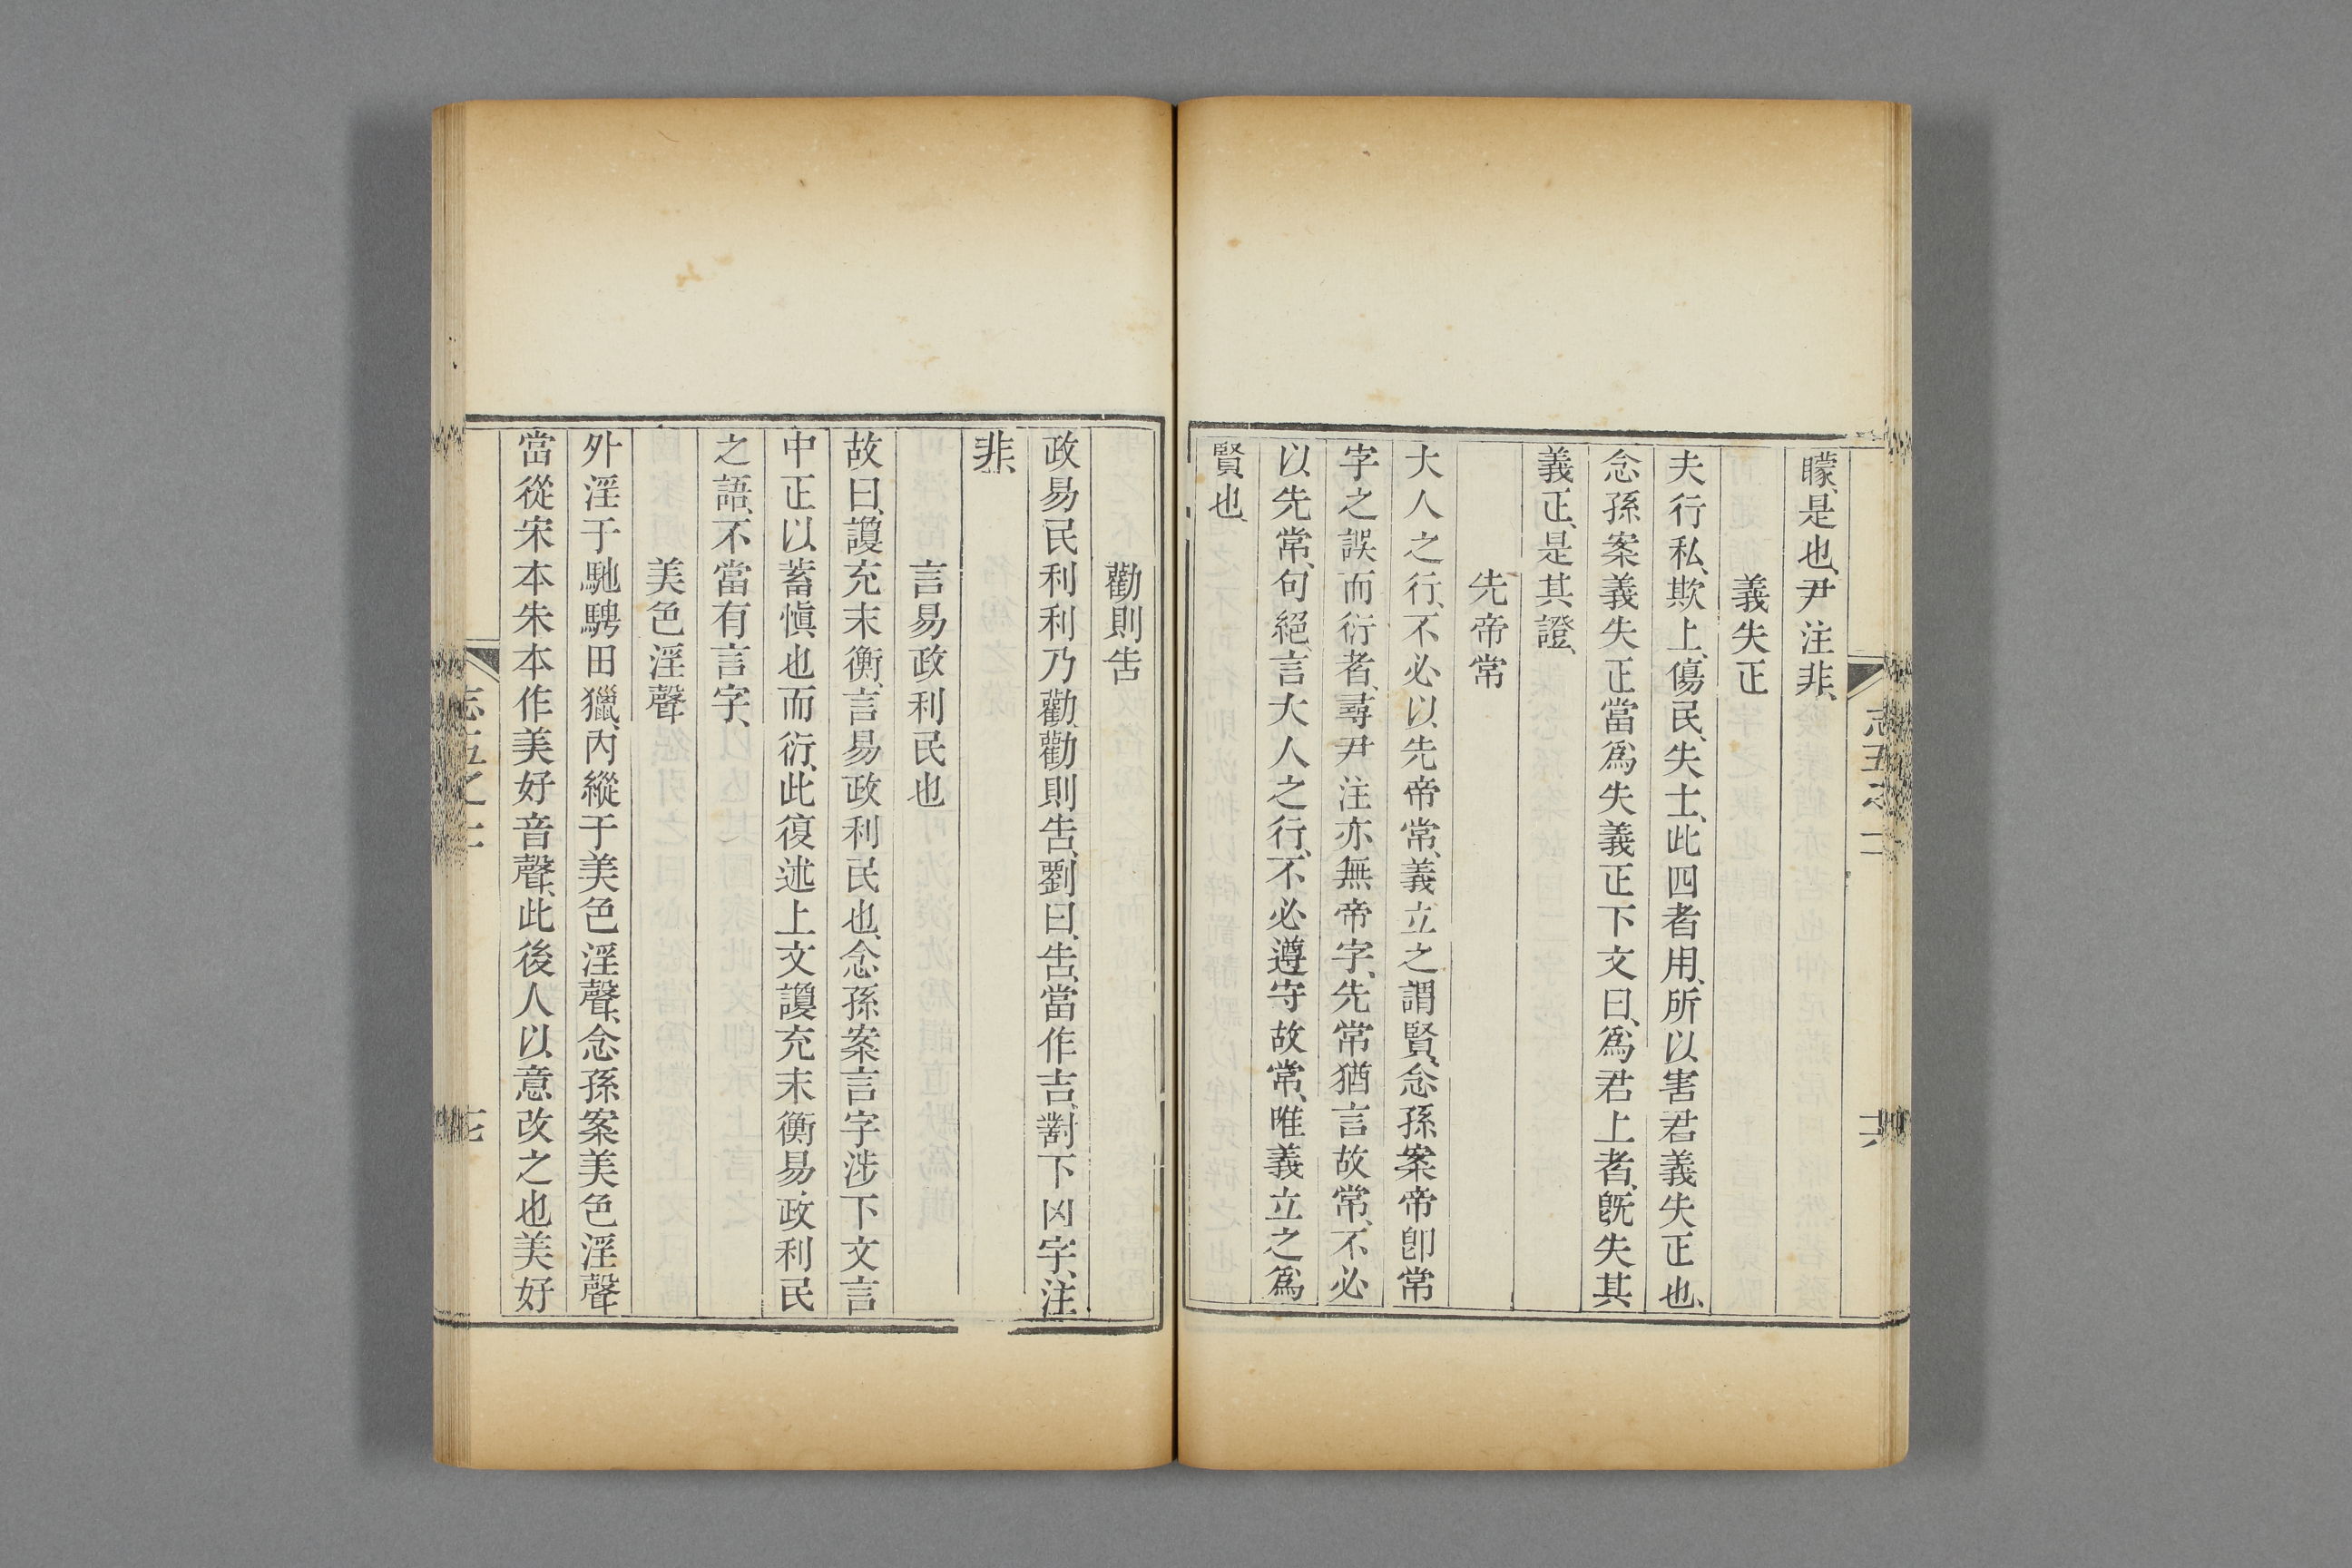 矇是也、尹注非、
義失正
夫行私、欺上、傷民、失士、此四者用、所以害君義失正也、
念孫案義失正當爲失義正下文曰、爲君上者、旣失其
義正、是其證、
先帝常
大人之行、不必以先帝常、義立之謂賢、念孫案帝卽常
字之誤而衍者、尋尹注亦無帝字、先常猶言故常、不必
以先常、句絕、言大人之行、不必遵守故常、唯義立之爲
賢也
志五之二
勸則告
政易民利利乃勸、勸則告、劉曰、告、當作吉、對下凶字、注
非、
言易政利民也
故曰、謾充末衡、言易政利民也、念孫案言字涉下文言
中正以蓄愼也而衍、此復述上文謾充末衡易政利民
之語、不當有言字、
美色淫聲
外淫于馳騁田獵、內縱于美色淫聲、念孫案美色淫聲
當從宋本朱本作美好音聲、此後人以意改之也美好